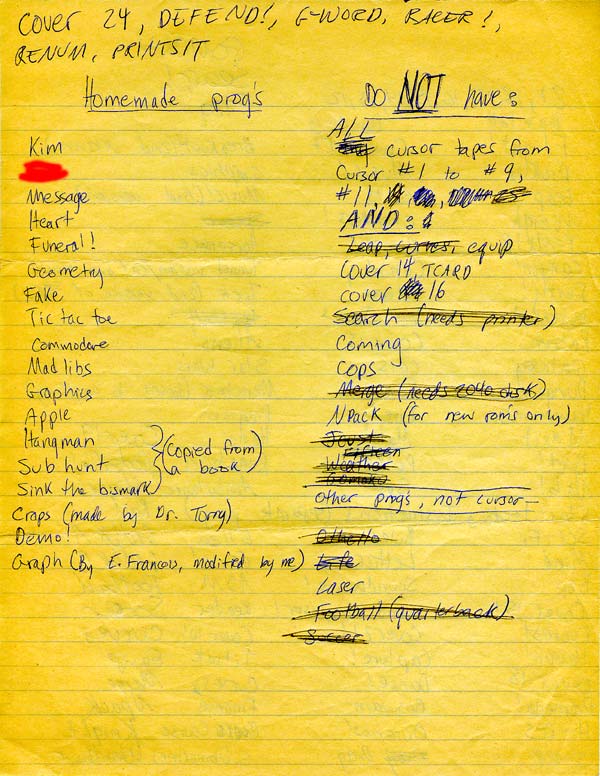 Cover 24, DEFEND!, G-WORD, RACER!,
RENUM, PRINTSIT
Homemade prog's
Kim
Message
Heart
Funeral!
Geometry
Fake
Tic tac toe
Commodore
Mad libs
Graphics
Apple
Hangman
Sub hunt
Sink the bismark
(Copied from
a book)
Craps (made by Dr. Torry)
Demo!
Graph (By E. Francois, modified by me)
Do NOT have:
ALL
cursor tapes from
Cursor #1 to #9,
#11,
AND:
Leap, equip
Cover 14, TCARD
cover 16
Search (needs printer)
Coming
Cops
Merge (needs 2040 disk)
NPack (for new rom's only)
Joust
Fifteen
Weather
Gomoko
Other prog's, not cursor—
Othello
Life
Laser
Football (quarterback)
Soccer